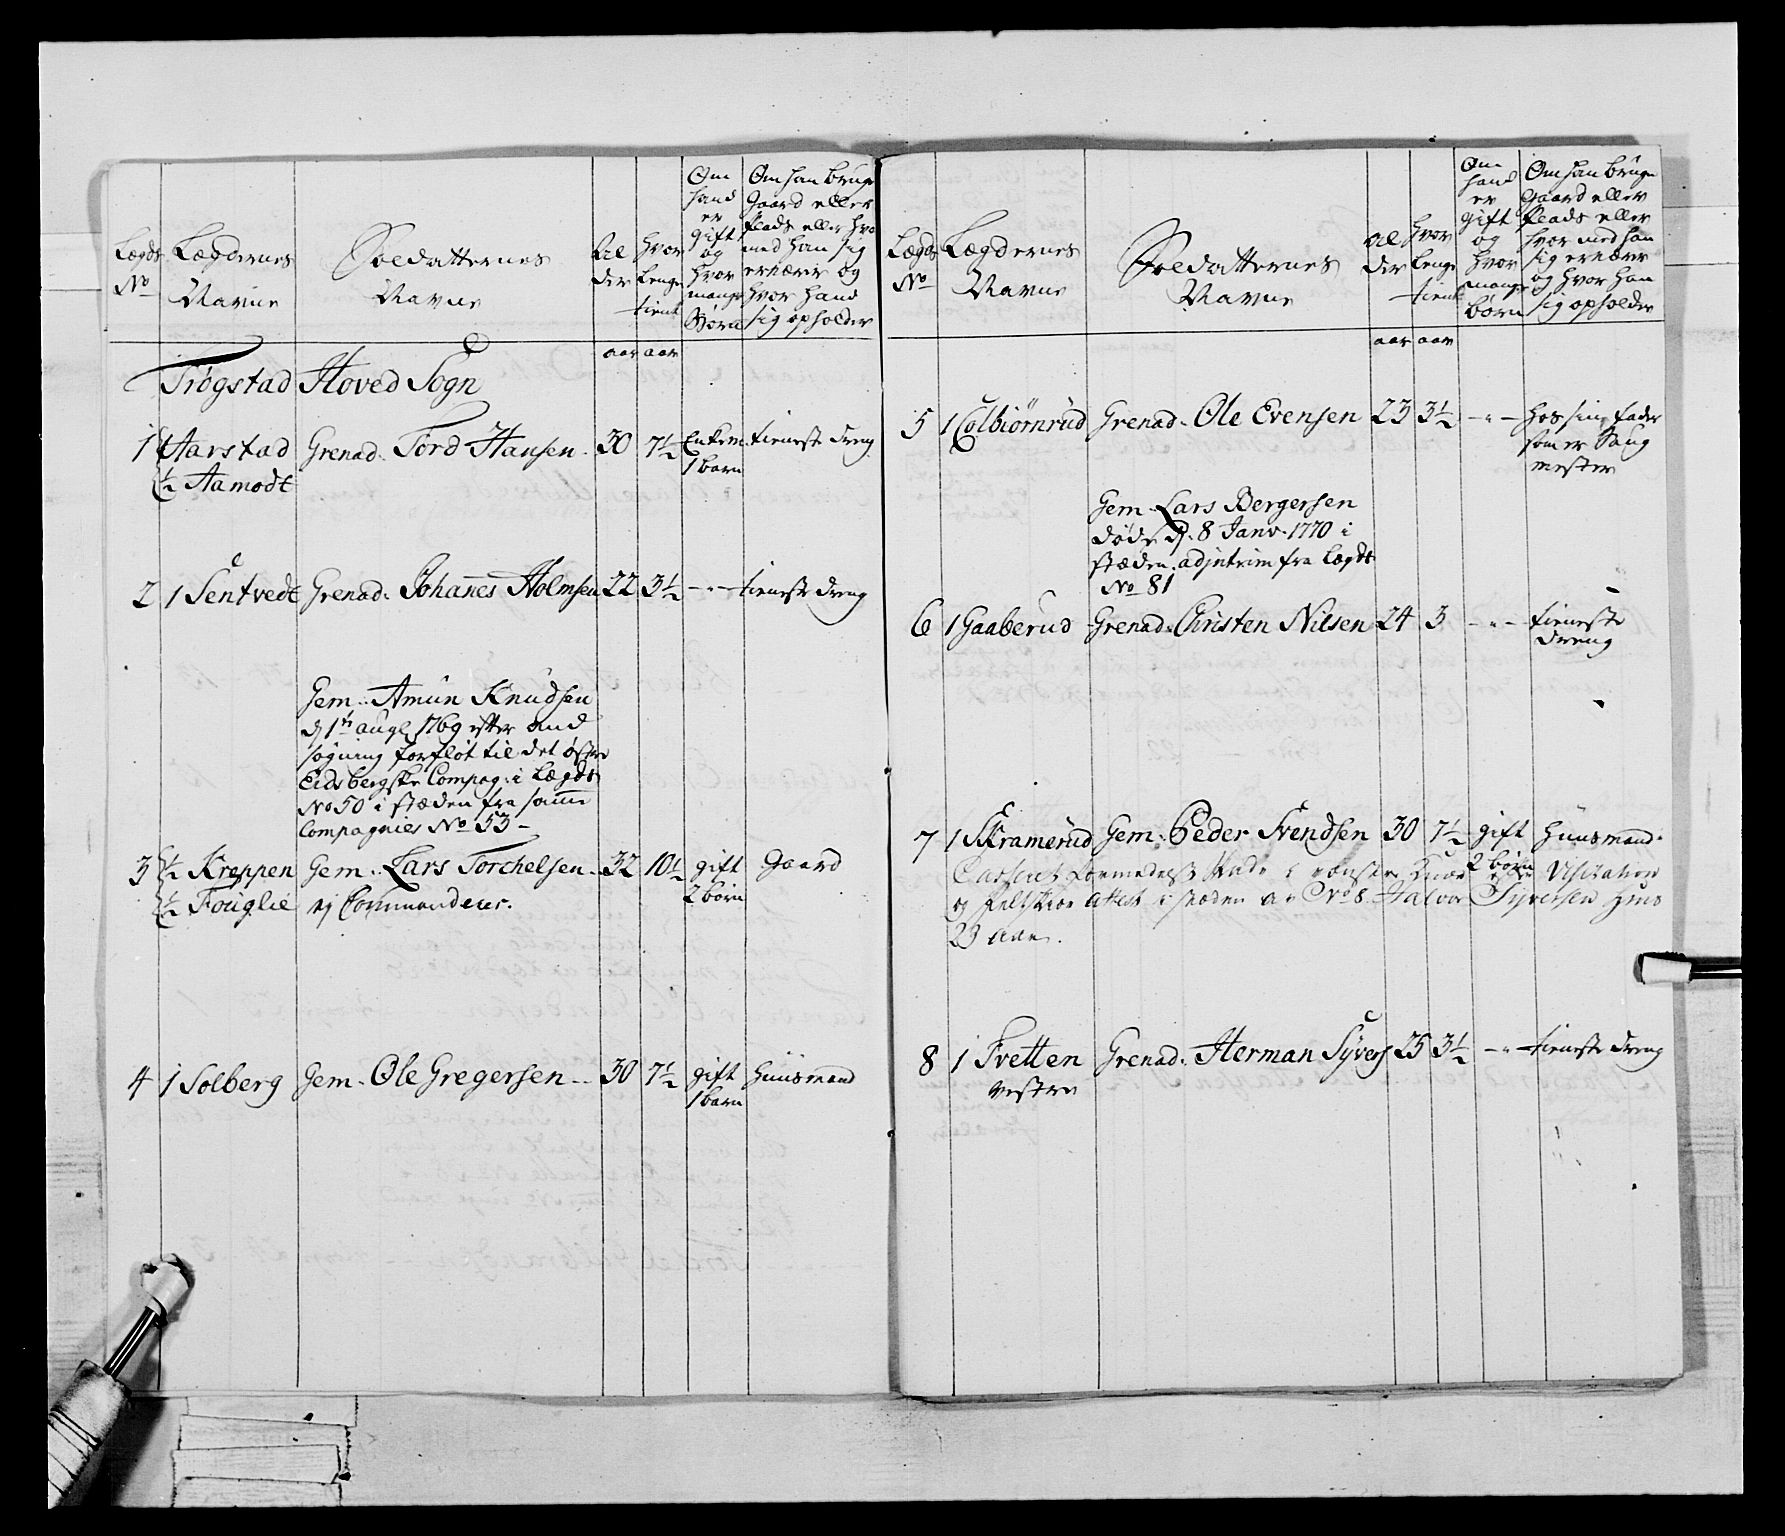 Lægds
No
Lægdernes
Navne
Soldatternes
Navne
Al
der
hvor
lenge
tient
Om
hand
er
gift
og
hvor
mange
Børn
Om han bruge
Gaard eller
Plads eller hvor
med han sig
ernærer og
hvor hand
sig opholder
aar aar
Trögstad Hoved Sogn
1 ½ Aarstad Grenad. Tord Hansen 30 7½ Enkem. tieneste dreng
½ Aamodt 1 barn
2 1 Sentvedt Grenad. Johannes Holmsen 22 3½ -"- tieneste dreng
Gem. Amun Knudsen
d. 1te augl. 1769 efter and
søgning forfløt til det østre
Eidsbergske Compag: i Lægds
No 50 i stæden fra samme
Compagnies No 53 -
3 ½ Kreppen Gem. Lars Torchelsen 32 10½ gift Gaard
½ Fouglie ej Commanderer. 2 börn
4 1 Solberg Gem. Ole Gregersen 30 7½ gift Huusmand
1 barn
Lægds
No
Lægdernes
Navne
Soldatternes
Navne
al
der
hvor
lenge
tient
Om
hand
er
gift
og
hvor
mange
börn
Om han bruge
Gaard eller
Plads eller
hvor med han
sig ernærer
og hvor han
sig opholder
aar aar
5 1 Colbiörnrud Grenad. Ole Evensen 23 3½ -"- hos sin fader
som er Saug
mester
Gem. Lars Bergersen
døde d. 8 Janv. 1770 i
stæden adjntrim fra Lægds
No 81
6 1 Gaaberud Grenad. Christen Nilsen 24 3 -"- tieneste
dreng
7 1 Skramerud Gem. Peder Svendsen 30 7½ gift Huusmand.
2 börn
Casseret formedelst Skade i venstre Visitation
og feltskier Attest i stæden av No 8 Halvor Syversen
23 Aar.
8 1 Tvetten Grenad. Herman Syvers 25 3½ -"- tieneste dreng
vestre